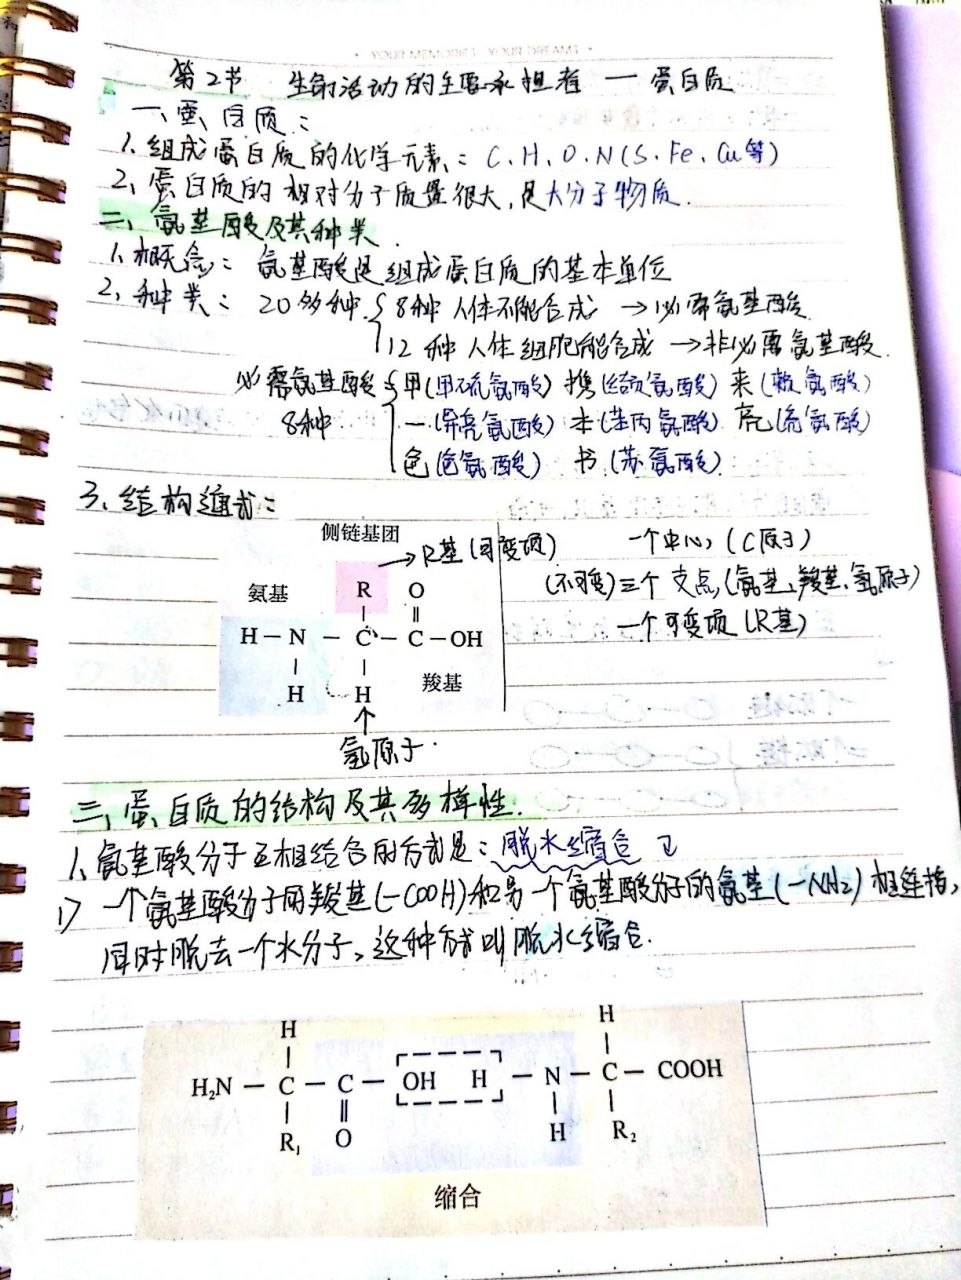 YOUR MEMORIES YOUR DREAMS
第2节 生命活动的主要承担者 — 蛋白质
一、蛋白质：
1、组成蛋白质的化学元素：C、H、O、N(S、Fe、Cu等)
2、蛋白质的相对分子质量很大，是大分子物质.
二、氨基酸及其种类.
1、概念：氨基酸是组成蛋白质的基本单位
2、种类：20多种{8种 人体不能合成 →必需氨基酸
12种 人体细胞能合成 →非必需氨基酸.
必需氨基酸 甲(甲硫氨酸) 携(缬氨酸) 来(赖氨酸)
8种 一(异亮氨酸) 本(苯丙氨酸) 亮(亮氨酸)
色(色氨酸) 书(苏氨酸)
3、结构通式：
侧链基团
→R基(可变项)
一个中心(C原子)
(不可变)三个支点(氨基、羧基、氢原子)
一个可变项(R基)
氨基
R O
H—N—C—C—OH
H H
羧基
↑
氢原子.
三、蛋白质的结构及其多样性.
1、氨基酸分子互相结合的方式是：脱水缩合
1) 一个氨基酸分子的羧基(—COOH)和另一个氨基酸分子的氨基(—NH2)相连接，
同时脱去一个水分子。这种方式叫脱水缩合.
H H
H₂N—C—C—OH H—N—C—COOH
R₁ O H R₂
缩合